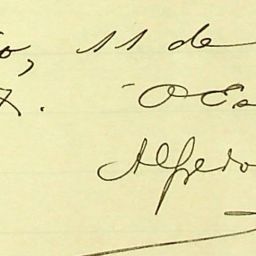 o, 11 de
7. O Es
Alfredo